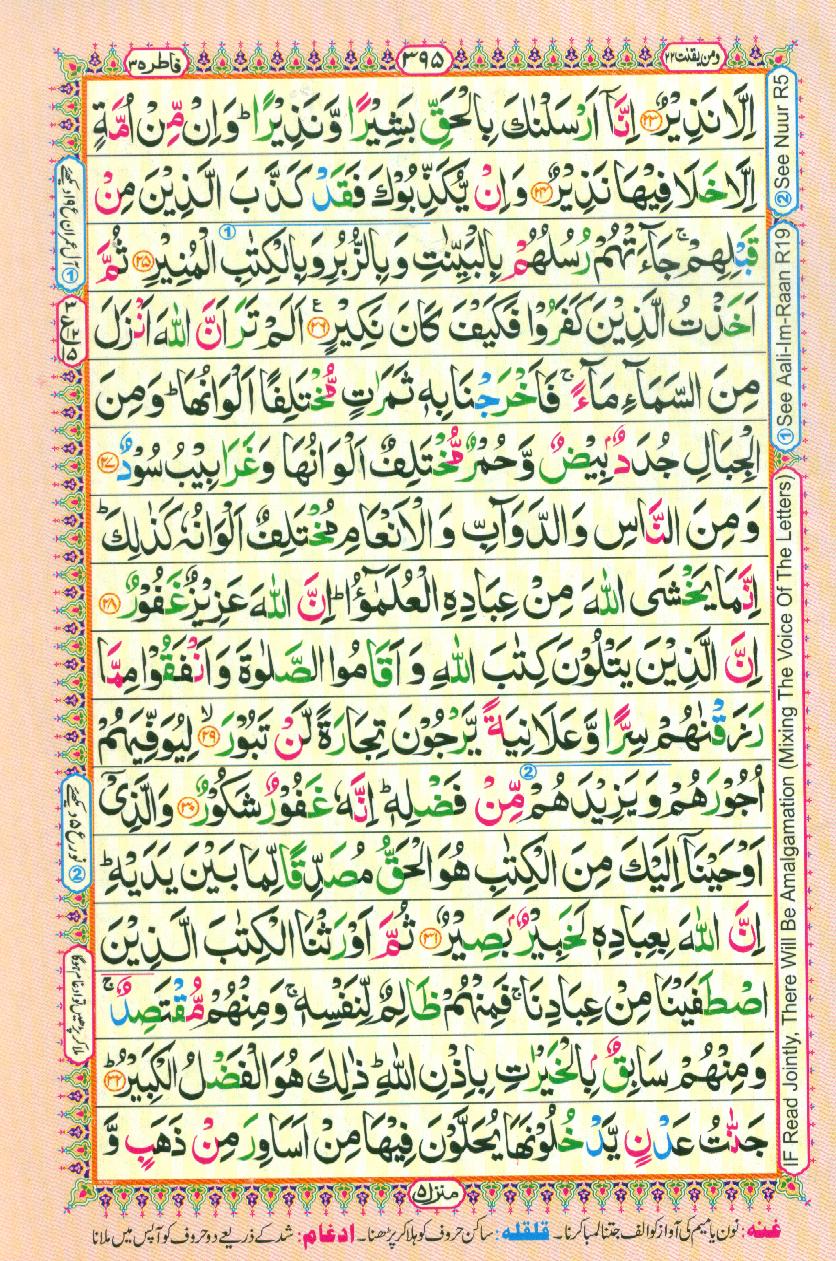 ومن يقنت ٢٢
٣٩٥
فاطر ٣٥
اِلَّا نَذِيْرٌ ﴿۲۳﴾ اِنَّاۤ اَرْسَلْنٰكَ بِالْحَقِّ بَشِيْرًا وَّنَذِيْرًا ؕ وَاِنْ مِّنْ اُمَّةٍ
اِلَّا خَلَا فِيْهَا نَذِيْرٌ ﴿۲۴﴾ وَاِنْ يُّكَذِّبُوْكَ فَقَدْ كَذَّبَ الَّذِيْنَ مِنْ
قَبْلِهِمْ ۚ جَآءَتْهُمْ رُسُلُهُمْ بِالْبَيِّنٰتِ وَبِالزُّبُرِ وَبِالْكِتٰبِ الْمُنِيْرِ ﴿۲۵﴾ ثُمَّ
اَخَذْتُ الَّذِيْنَ كَفَرُوْا فَكَيْفَ كَانَ نَكِيْرِ ﴿۲۶﴾ اَلَمْ تَرَ اَنَّ اللّٰهَ اَنْزَلَ
مِنَ السَّمَآءِ مَآءً ۚ فَاَخْرَجْنَا بِهٖ ثَمَرٰتٍ مُّخْتَلِفًا اَلْوَانُهَا ؕ وَمِنَ
الْجِبَالِ جُدَدٌۢ بِيْضٌ وَّحُمْرٌ مُّخْتَلِفٌ اَلْوَانُهَا وَغَرَابِيْبُ سُوْدٌ ﴿۲۷﴾
وَمِنَ النَّاسِ وَالدَّوَآبِّ وَالْاَنْعَامِ مُخْتَلِفٌ اَلْوَانُهٗ كَذٰلِكَ ؕ
اِنَّمَا يَخْشَى اللّٰهَ مِنْ عِبَادِهِ الْعُلَمٰٓؤُا ؕ اِنَّ اللّٰهَ عَزِيْزٌ غَفُوْرٌ ﴿۲۸﴾
اِنَّ الَّذِيْنَ يَتْلُوْنَ كِتٰبَ اللّٰهِ وَاَقَامُوا الصَّلٰوةَ وَاَنْفَقُوْا مِمَّا
رَزَقْنٰهُمْ سِرًّا وَّعَلَانِيَةً يَّرْجُوْنَ تِجَارَةً لَّنْ تَبُوْرَ ﴿۲۹﴾ لِيُوَفِّيَهُمْ
اُجُوْرَهُمْ وَيَزِيْدَهُمْ مِّنْ فَضْلِهٖ ؕ اِنَّهٗ غَفُوْرٌ شَكُوْرٌ ﴿۳۰﴾ وَالَّذِيْۤ
اَوْحَيْنَاۤ اِلَيْكَ مِنَ الْكِتٰبِ هُوَ الْحَقُّ مُصَدِّقًا لِّمَا بَيْنَ يَدَيْهِ ؕ
اِنَّ اللّٰهَ بِعِبَادِهٖ لَخَبِيْرٌۢ بَصِيْرٌ ﴿۳۱﴾ ثُمَّ اَوْرَثْنَا الْكِتٰبَ الَّذِيْنَ
اصْطَفَيْنَا مِنْ عِبَادِنَا ۚ فَمِنْهُمْ ظَالِمٌ لِّنَفْسِهٖ ۚ وَمِنْهُمْ مُّقْتَصِدٌ ۚ
وَمِنْهُمْ سَابِقٌۢ بِالْخَيْرٰتِ بِاِذْنِ اللّٰهِ ؕ ذٰلِكَ هُوَ الْفَضْلُ الْكَبِيْرُ ؕ ﴿۳۲﴾
جَنّٰتُ عَدْنٍ يَّدْخُلُوْنَهَا يُحَلَّوْنَ فِيْهَا مِنْ اَسَاوِرَ مِنْ ذَهَبٍ وَّ
② See Nuur R5
① See Aali-Im-Raan R19
IF Read Jointly, There Will Be Amalgamation (Mixing The Voice Of The Letters)
① آل عمران ع۱۹ دیکھئے
② نور ع۵ دیکھئے
ملا کر پڑھیں تو ادغام ہوگا
منزل ۵
غنہ: نون یا میم کی آواز کو الف جتنا لمبا کرنا۔ قلقلہ: ساکن حروف کو ہلا کر پڑھنا۔ ادغام: شد کے ذریعے دو حروف کو آپس میں ملانا